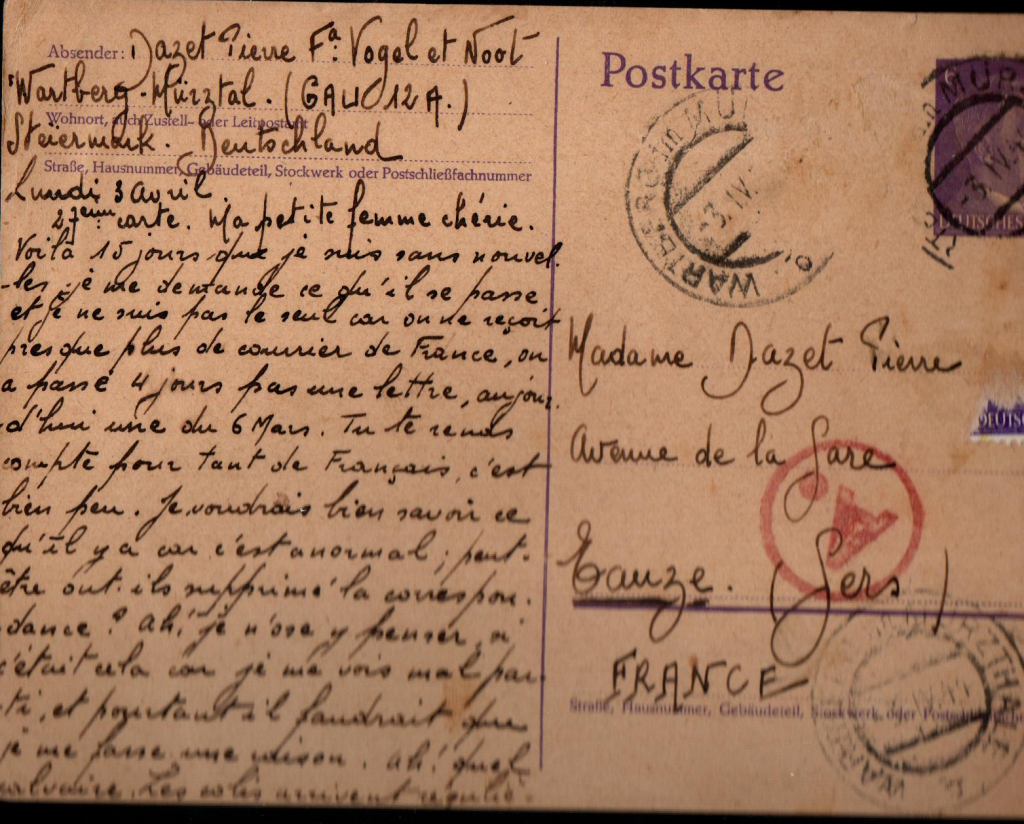 Absender: Dazet Pierre Fa: Vogel et Noot
Wartberg-Mürztal. (GAU 12A.)
Wohnort, auch Zustell- oder Leitpostamt
Steiermark. Deutschland
Straße, Hausnummer, Gebäudeteil, Stockwerk oder Postschließfachnummer
Lundi 3 Avril
27ème carte. Ma petite femme chérie.
Voilà 15 jours que je suis sans nouvel-
-les je me demande ce qu'il se passe
et je ne suis pas le seul car on ne reçoit
presque plus de courrier de France, on
a passé 4 jours pas une lettre, aujour-
-d'hui une du 6 Mars. Tu te rends
compte pour tant de Français, c'est
bien peu. Je voudrais bien savoir ce
qu'il y a car c'est anormal; peut-
être ont-ils supprimé la correspon-
dance? Ah! je n'ose y penser, si
c'était cela car je me vois mal par-
-ti, et pourtant il faudrait que
je me fasse une raison. Ah! quel
calvaire. Les colis arrivent réguliè-
Postkarte
WARTBERG
3.IV.
DEUTSCHES
Madame Dazet Pierre
Avenue de la Gare
Eauze. (Gers)
FRANCE
A
Straße, Hausnummer, Gebäudeteil, Stockwerk oder